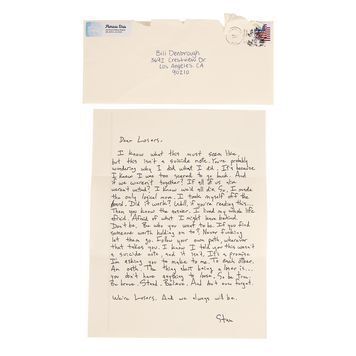 Bill Denbrough
3692 Crestview Dr.
Los Angeles, CA
90210
Dear Losers,
I know what this must seem like,
but this isn't a suicide note. You're probably
wondering why I did what I did. It's because
I knew I was too scared to go back. And
if we weren't together? If all of us alive
weren't united? I knew we'd all die. So, I made
the only logical move. I took myself off the
board. Did it work? Well, if you're reading this...
Then you know the answer. I lived my whole life
afraid. Afraid of what I might leave behind.
Don't be. Be who you want to be. If you find
someone worth holding on to? Never fucking
let them go. Follow your own path, wherever
that takes you. I know I told you this wasn't
a suicide note, and it isn't. It's a promise
I'm asking you to make to me. To each other.
An oath. The thing about being a loser is...
you don't have anything to lose. So be true.
Be brave. Stand. Believe. And don't ever forget.
We're Losers. And we always will be.
Stan